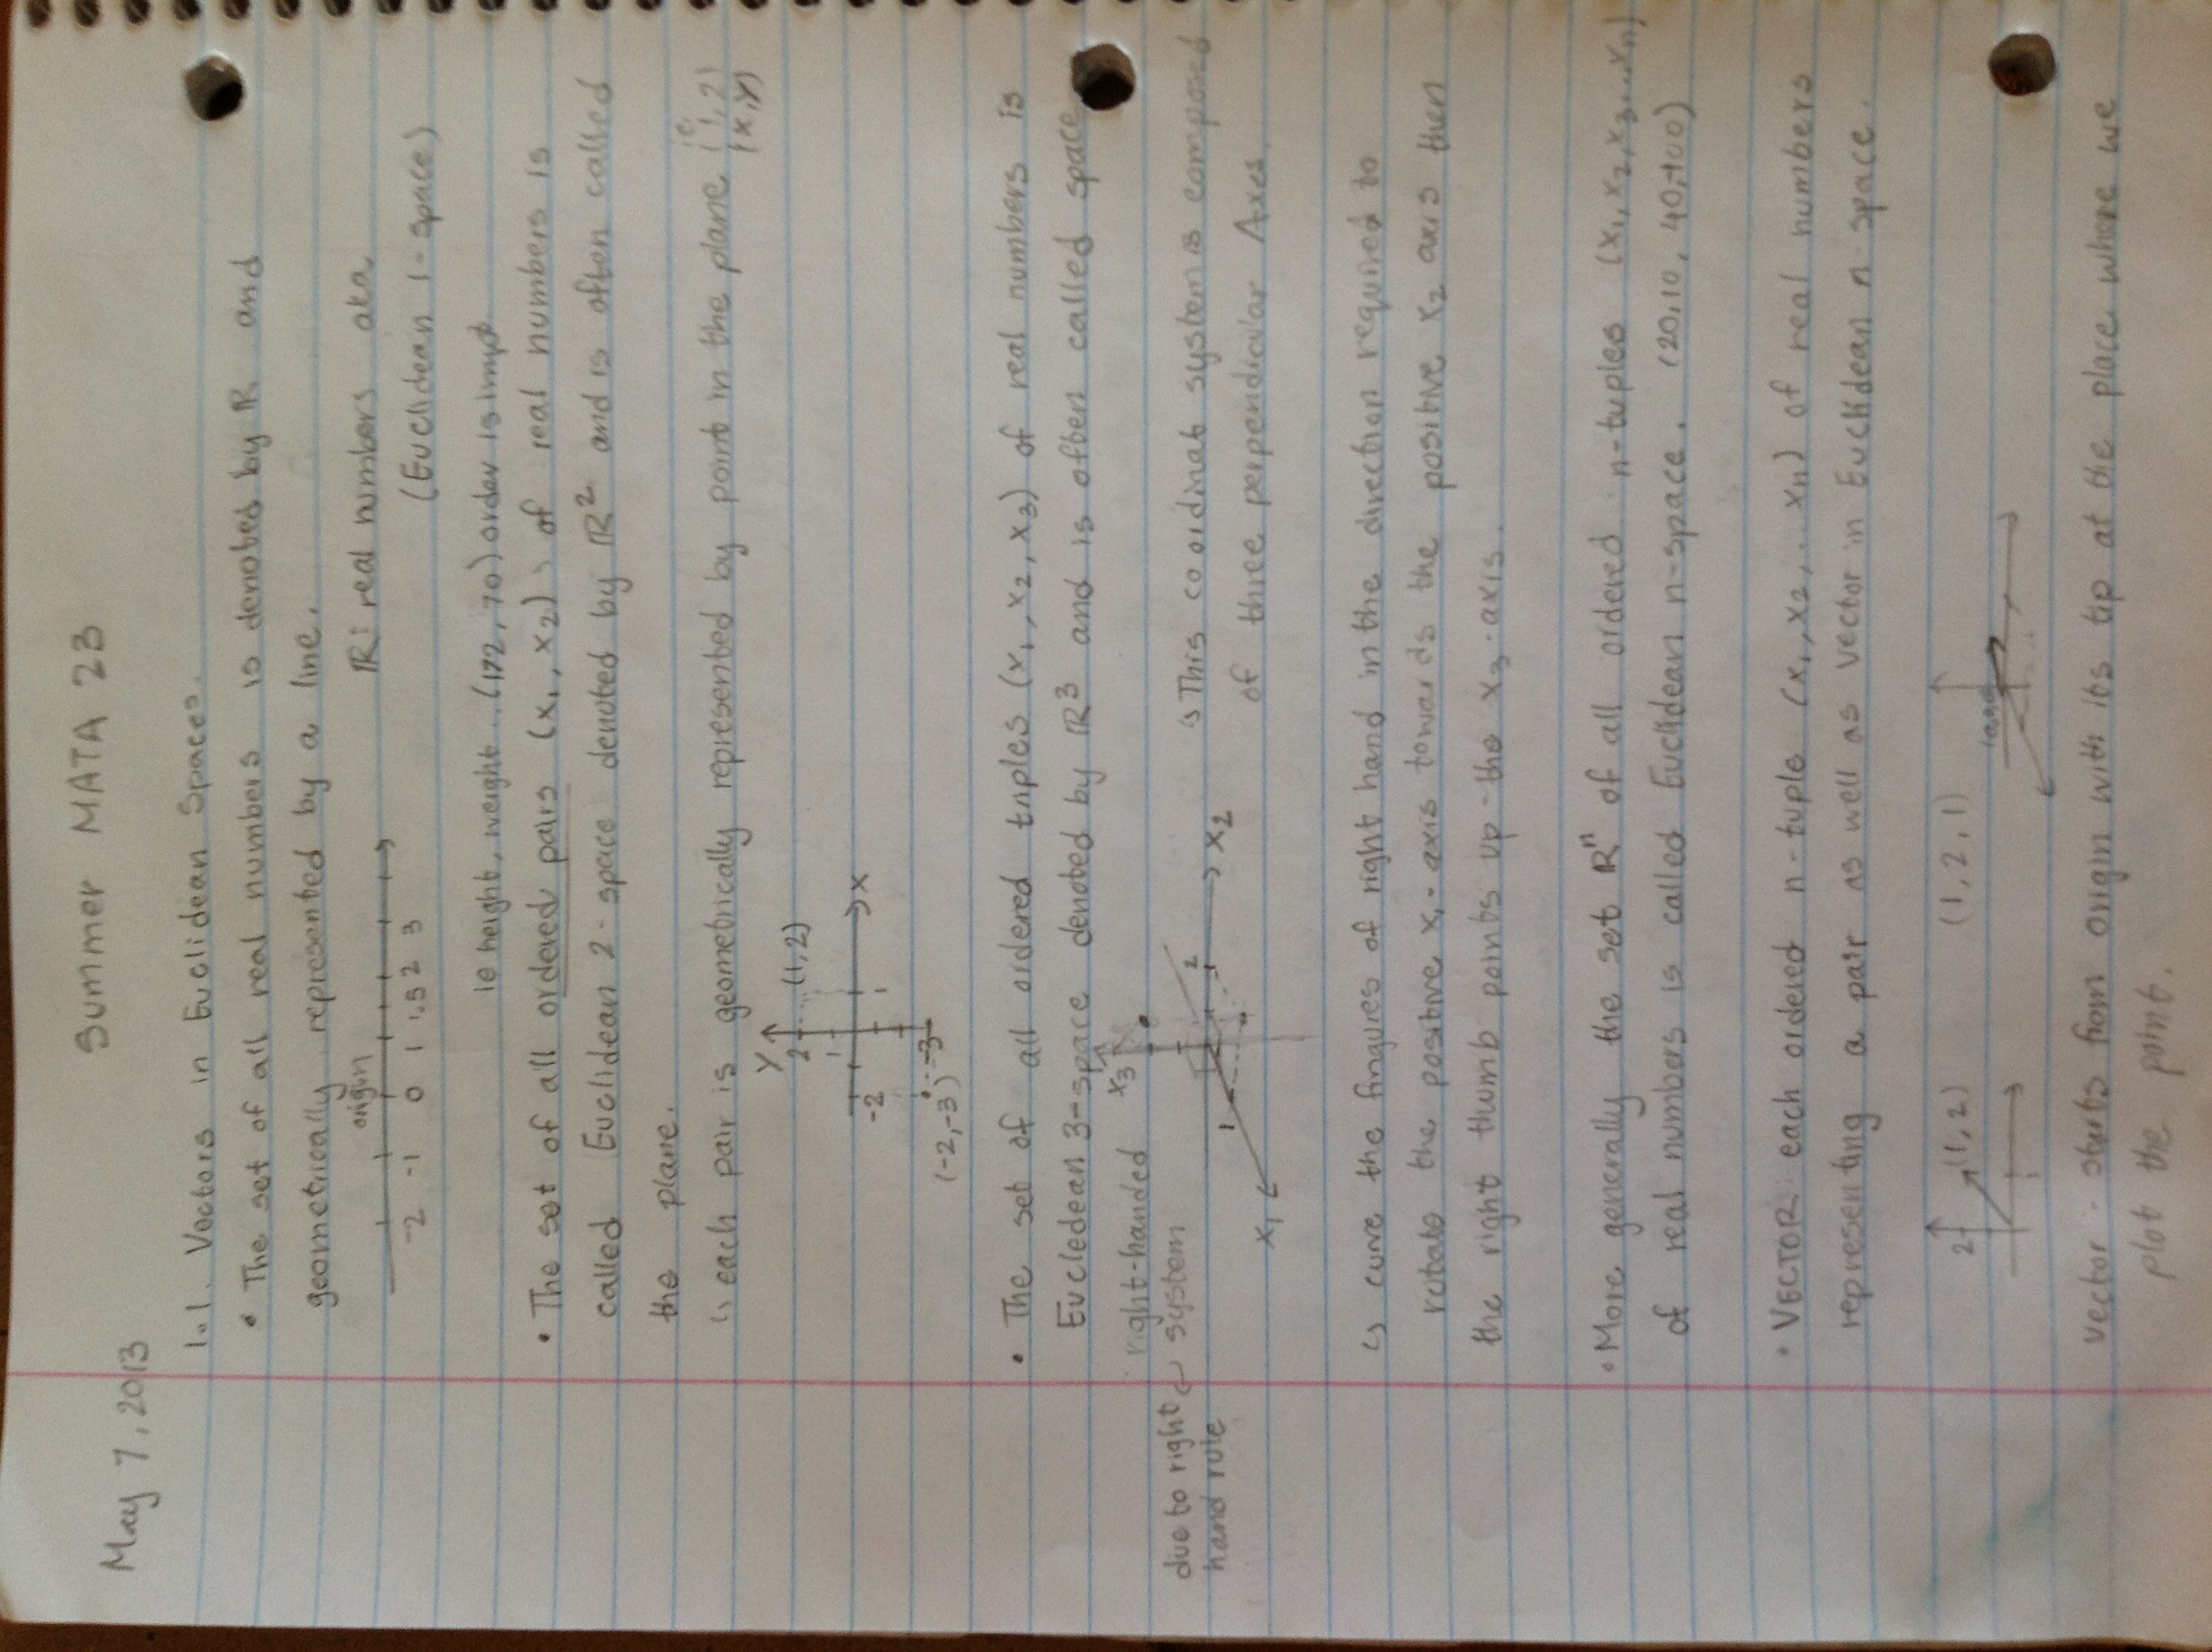 May 7, 2013
Summer MATA 23
1.1. Vectors in Euclidean Spaces.
• The set of all real numbers is denoted by ℝ and
geometrically represented by a line.
origin
-2 -1 0 1 1.5 2 3
ℝ: real numbers aka
(Euclidean 1-space)
ie height, weight (172, 70) order is imp
• The set of all ordered pairs (x₁, x₂) of real numbers is
called Euclidean 2-space denoted by ℝ² and is often called
the plane.
↳ each pair is geometrically represented by point in the plane
ie (1,2)
(x,y)
Y
2 (1,2)
1
X
-2 1
-3
(-2,-3)
• The set of all ordered triples (x₁, x₂, x₃) of real numbers is
Eucledean 3-space denoted by ℝ³ and is often called space
right-handed
system
due to right
hand rule
x₃
2
1
x₂
x₁
↳ This coordinat system is composed
of three perpendicular Axes.
↳ curve the fingures of right hand in the direction required to
rotate the positive x₁-axis towards the positive x₂ axis then
the right thumb points up the x₃-axis.
• More generally the set ℝⁿ of all ordered n-tuples (x₁, x₂, x₃...xₙ)
of real numbers is called Euclidean n-space. (20,10,40,400)
• VECTOR: each ordered n-tuple (x₁, x₂, ... xₙ) of real numbers
representing a pair as well as vector in Euclidean n-space.
2 (1,2)
1
(1,2,1)
vector - starts from origin with its tip at the place where we
plot the point.